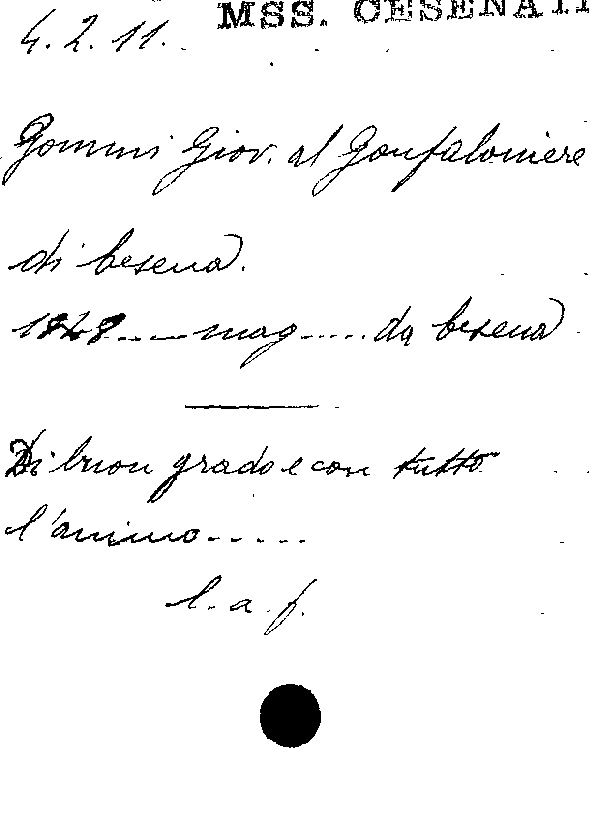 MSS. CESENATI
4.2.11.
Gommi Giov. al Gonfaloniere
di Cesena.
1848.....mag.....da Cesena
Di buon grado e con tutto
l'animo.....
l. a. f.